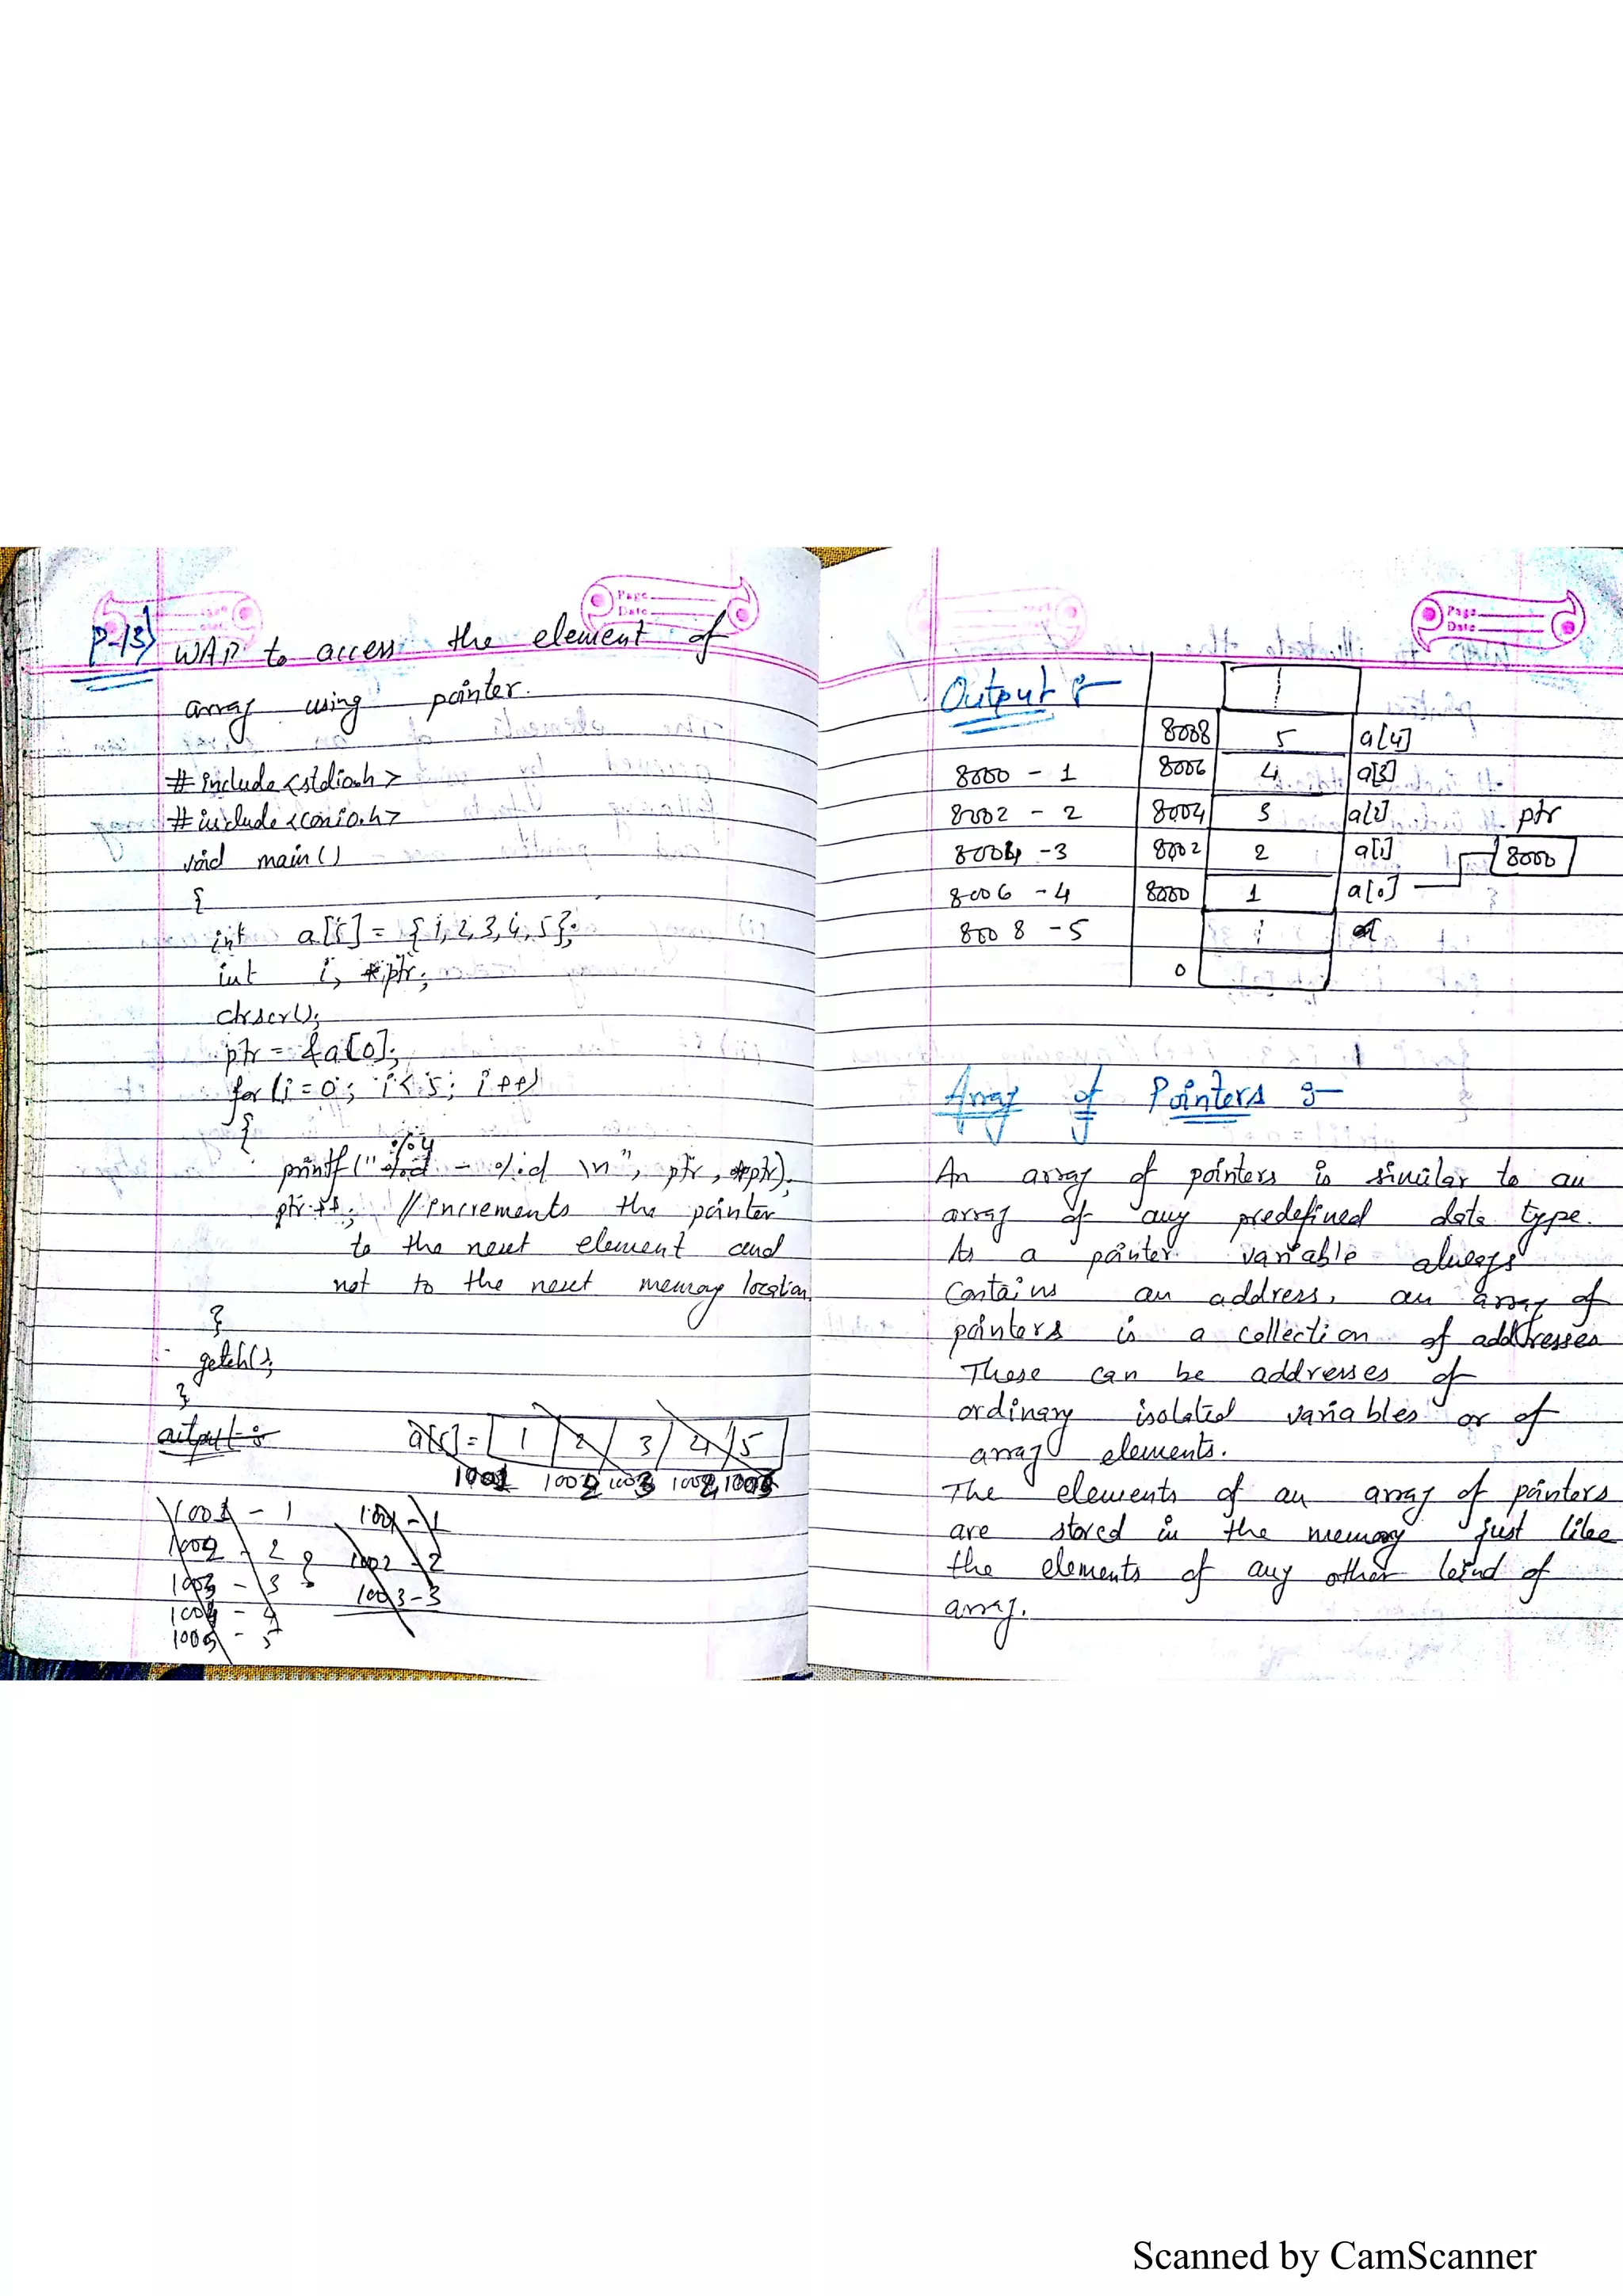 P-13) WAP to access the element of
array using pointer.
#include<stdio.h>
#include<conio.h>
void main()
{
int a[5] = {1,2,3,4,5};
int i, *ptr;
clrscr();
ptr = &a[0];
for(i=0; i<5; i++)
{
%u
printf("%d - %d \n", ptr, *ptr);
ptr++; // increments the pointer
to the next element and
not to the next memory location
}
getch();
}
output :-
a[5] = 1 2 3 4 5
1001 1002 1003 1004 1005
1001 - 1 1001 - 1
1002 - 2 1002 - 2
1003 - 3 1003 - 3
1004 - 4
1005 - 5
Page
Date
Page
Date
Output :-
8008 5 a[4]
8000 - 1 8006 4 a[3]
8002 - 2 8004 3 a[2] ptr
8004 - 3 8002 2 a[1] 8000
8006 - 4 8000 1 a[0]
8008 - 5
0
Array of Pointers :-
An array of pointers is similar to an
array of any predefined data type.
As a pointer variable always
contains an address, an array of
pointers is a collection of addresses
These can be addresses of
ordinary isolated variables or of
array elements.
The elements of an array of pointers
are stored in the memory just like
the elements of any other kind of
array.
Scanned by CamScanner